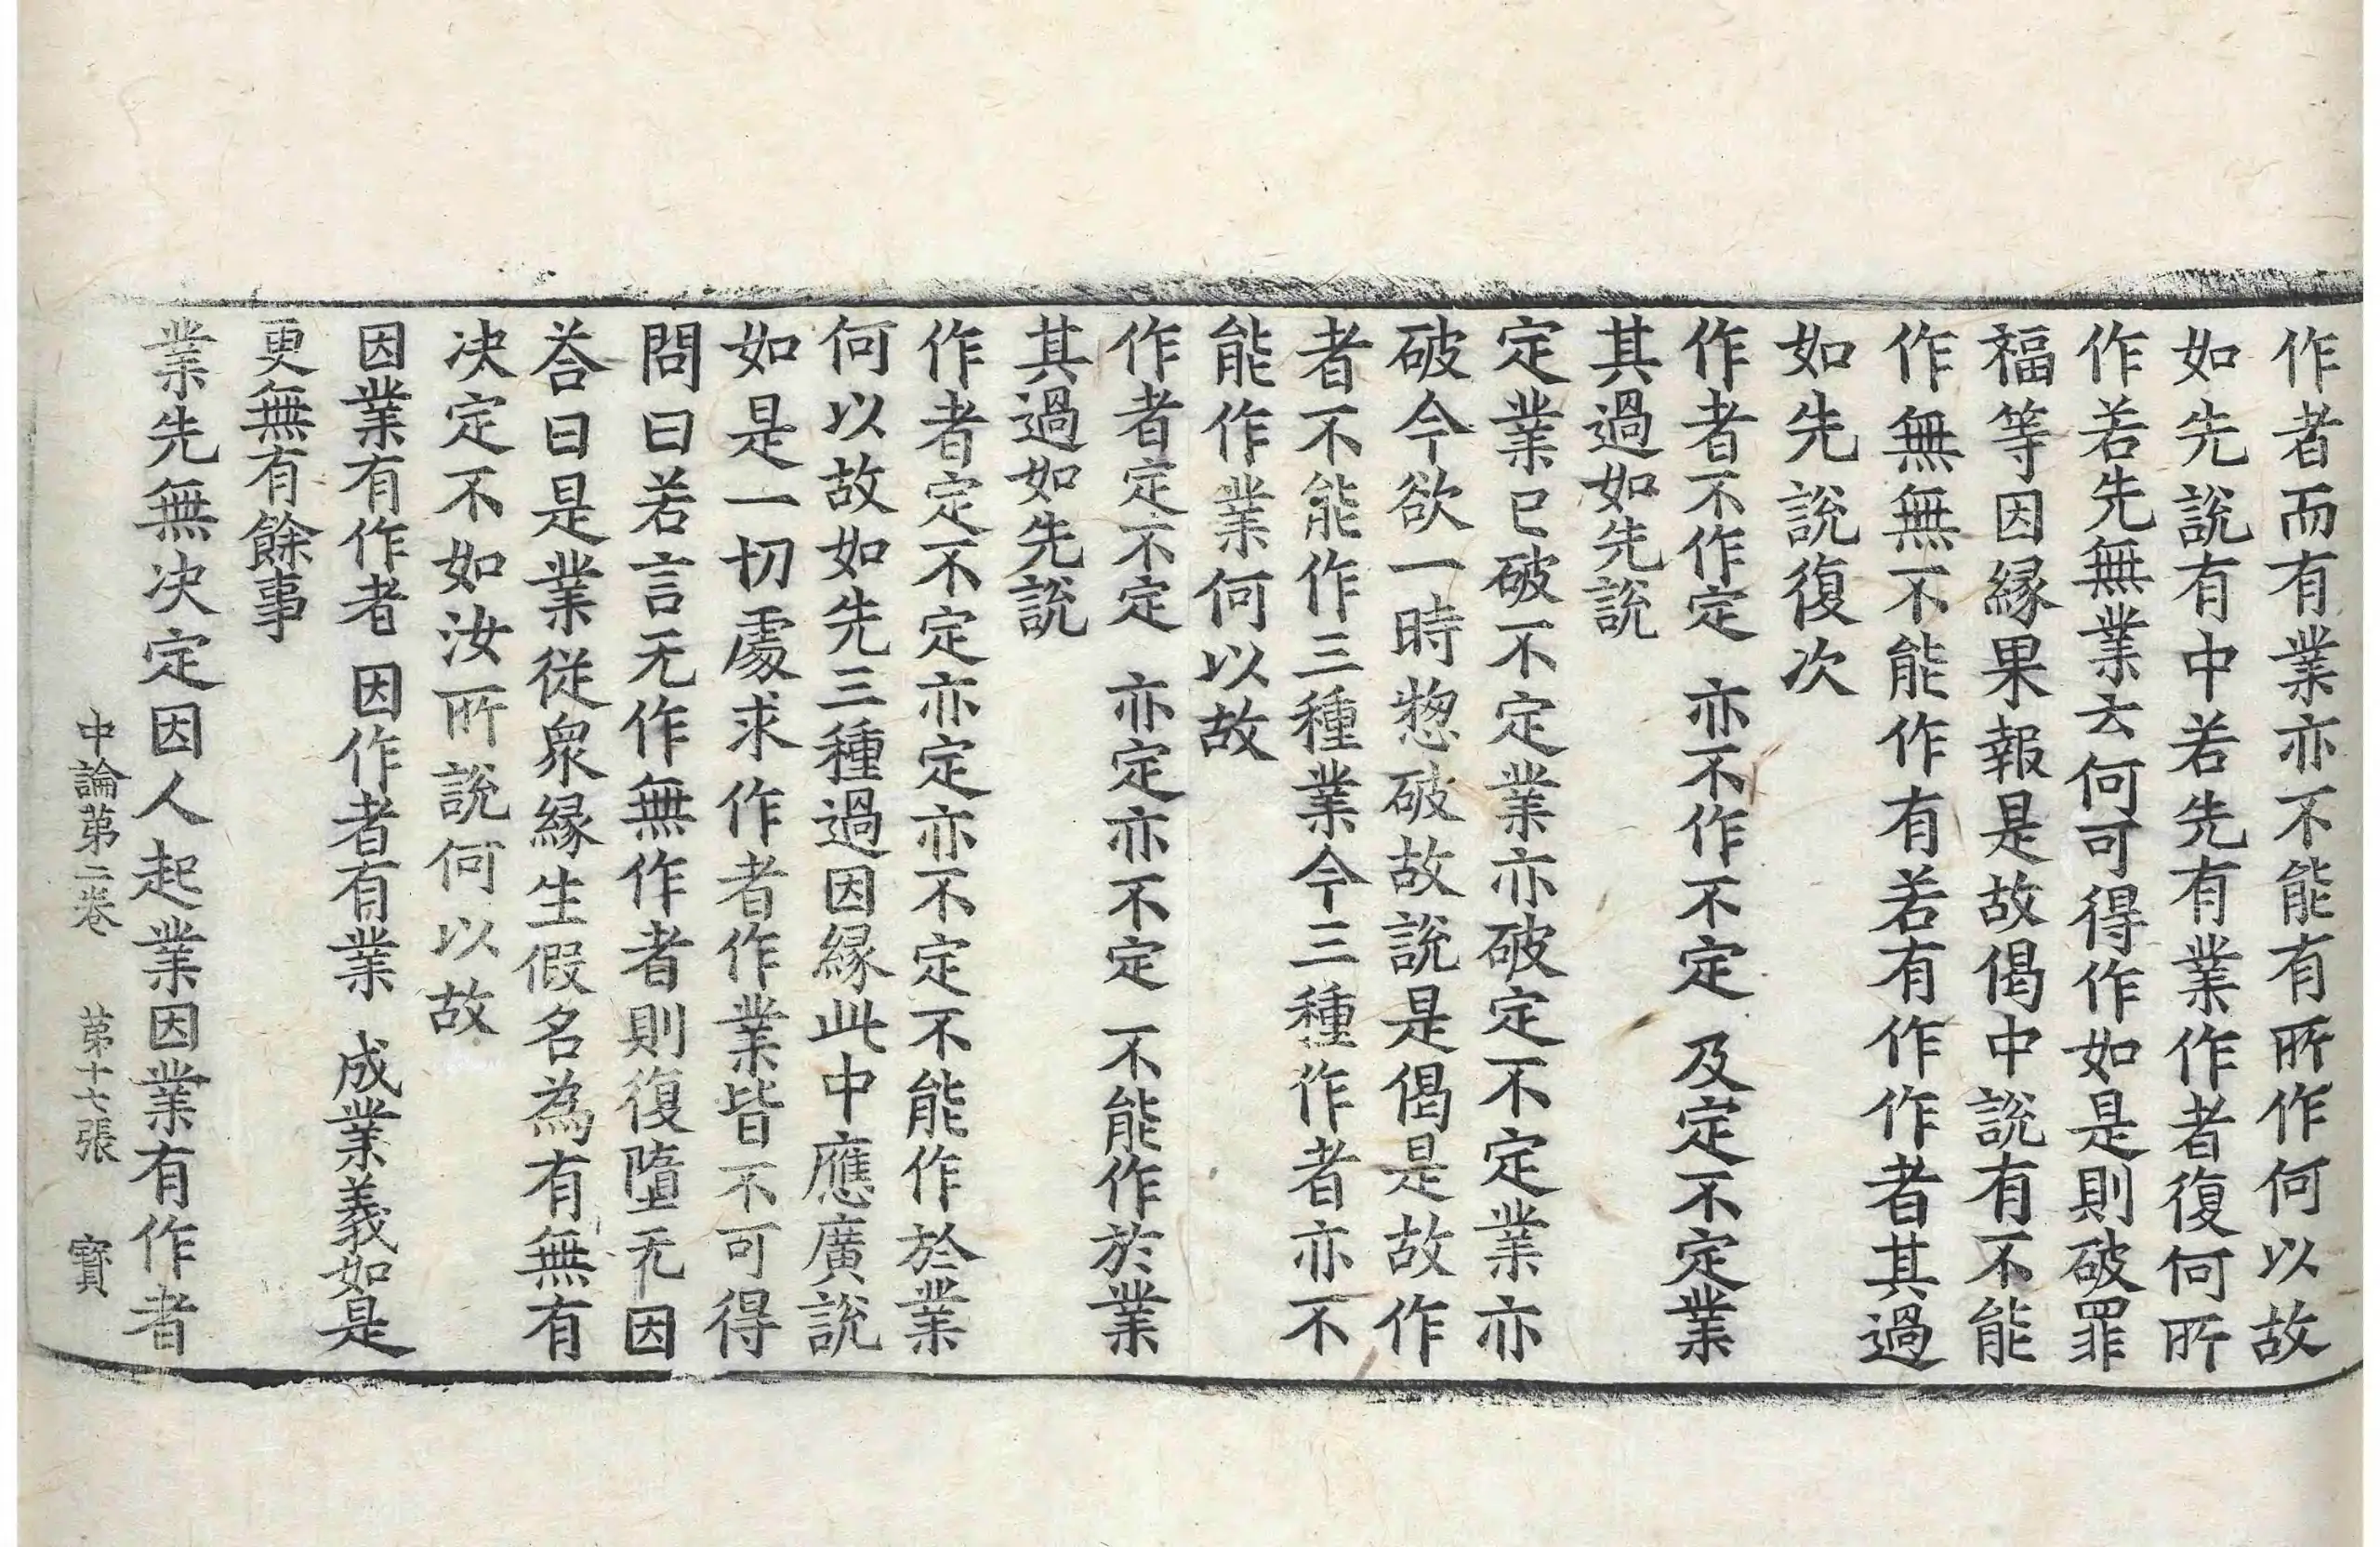 作者而有業亦不能有所作何以故
如先說有中若先有業作者復何所
作若先無業去何可得作如是則破罪
福等因緣果報是故偈中說有不能
作無無不能作有若有作作者其過
如先說復次
作者不作定　亦不作不定　及定不定業
其過如先說
定業已破不定業亦破定不定業亦
破今欲一時惣破故說是偈是故作
者不能作三種業今三種作者亦不
能作業何以故
作者定不定　亦定亦不定　不能作於業
其過如先說
作者定不定亦定亦不定不能作於業
何以故如先三種過因緣此中應廣說
如是一切處求作者作業皆不可得
問曰若言无作無作者則復墮无因
荅曰是業從衆緣生假名為有無有
决定不如汝所說何以故
因業有作者　因作者有業　成業義如是
更無有餘事
業先無决定因人起業因業有作者
中論苐二卷　苐十七張　寶